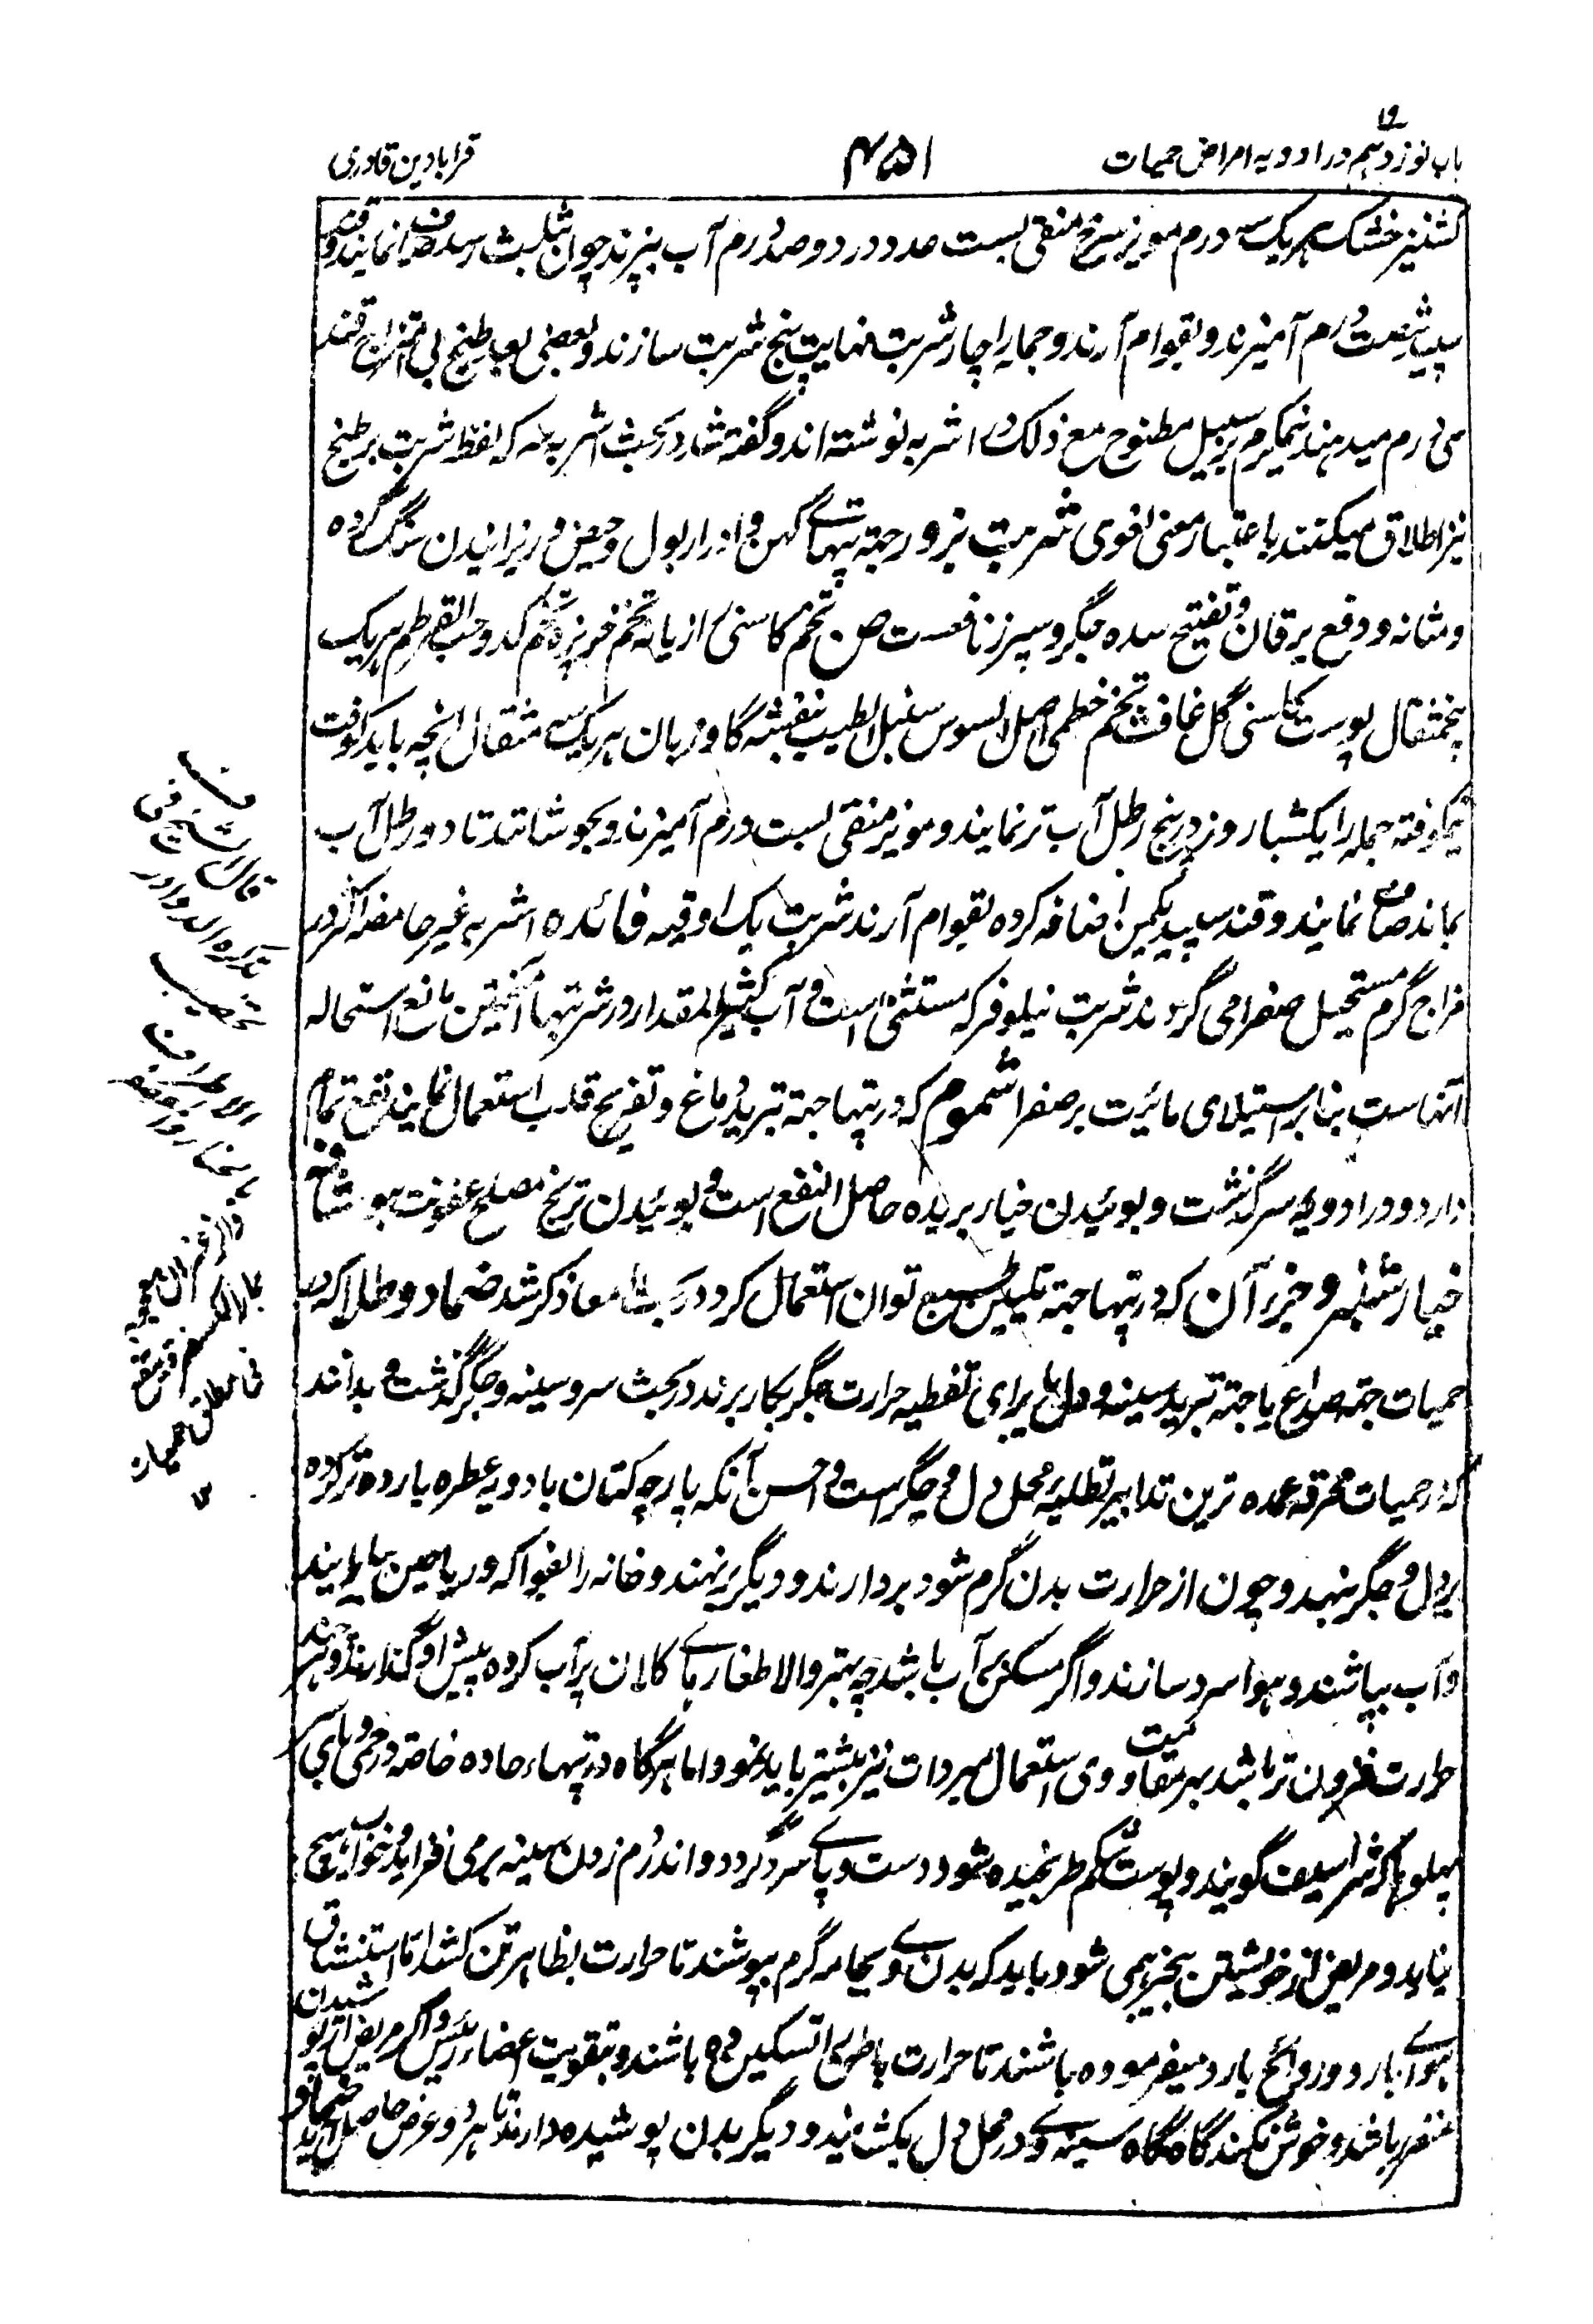 باب نوزدهم در ادویه امراض حمیات
۴۵۱
قرابادین قادری
کشنیز خشک هریک سه درم مویز سرخ منقی بست عدد در دو صد درم آب بپزند چون بثلث رسد صاف نمایند و قند
سپید شصت درم آمیزند و بقوام آرند و جمله را چار شربت نهایت پنج شربت سازند و بعضی بعد طبخ بی امتزاج قند
سی درم میدهند نیمگرم بر سبیل مطبوخ مع ذلک در اشربه نوشته اند و گفته شد در بحث اشربه که لفظ شربت بر طبیخ
نیز اطلاق میکنند باعتبار معنی لغوی شربت بزور جهة تپهای کهن و ادرار بول و حیض و ریزانیدن سنگ گرده
و مثانه و دفع یرقان و تفتیح سده جگر و سپرز نافعست ص تخم کاسنی رازیانه تخم خرپزه تخم کدو حب القرطم هریک
پنجمثقال پوست کاسنی گل غافث تخم خطمی اصل السوس سنبل الطیب بنفشه گاوزبان هریک سه مثقال انچه باید کوفت
نیمکوفته جمله را یکشباروز در پنج رطل آب تر نمایند و مویز منقی بست درم آمیزند و بجوشانند تا دو رطل آب
بماند صاف نمایند و قند سپید یکمن اضافه کرده بقوام آرند شربت یک اوقیه فائده اشربه غیر حامضه اکثر در
مزاج گرم مستحیل صفرا می گردند شربت نیلوفر که مستثنی است و آب کثیر المقدار در شربتها آمیختن مانع استحاله
آنهاست بنابر استیلای مائیت بر صفرا شموم که در تپها جهة تبرید دماغ و تفریح قلب استعمال نمایند نفع تمام
دارد و در ادویه سر گذشت و بوئیدن خیار بریده حاصل النفع است و بوئیدن ترنج مصلح عفونت هوا شافه
خیارشنبر و جز آن که در تپها جهة تلیین طبع توان استعمال کرد در بحث امعا ذکر شد ضماد و طلا که در
حمیات جهة صداع یا جهة تبرید سینه و دل یا برای تطفیه حرارت جگر بکار برند در بحث سر و سینه و جگر گذشت و بدانند
که در حمیات محرقه عمده ترین تدابیر تطلیه محل دل و جگر است و احسن آنکه پارچه کتان بادویه عطره بارده تر کرده
بر دل و جگر نهند و چون از حرارت بدن گرم شود بردارند و دیگر بر نهند و خانه را بفواکه و ریاحین بیارایند
و آب بپاشند و هوا سرد سازند و اگر مسکن بر آب باشد چه بهتر و الا طغارهای کلان پر آب کرده پیش او گذارند و هر چند
حرارت فزون تر باشد بهر مقاومت وی استعمال مبردات نیز بیشتر باید نمود اما هرگاه در تپهاء حاده خاصة در حمی
پهلوها که شراسیف گویند و پوست شکم ترنجیده شود و دست و پای سرد گردد و اندر دم زدن سینه بر می افرازد و خواب هیچ
نیاید و مریض از خویشتن بیخبر همی شود باید که بدن وی بجامه گرم بپوشند تا حرارت بظاهر تن کشد اما استنشاق
هوای بارد و روایح بارد میفرموده باشند تا حرارت باطن را تسکین دهد و بتقویت اعضاء رئیس و اگر مریض از پوشیدن
متنفر باشد و خوش نکند گاه گاه سینه وی در محل دل بکشایند و دیگر بدن پوشیده دارند تا هر دو غرض حاصل آید ضماد
ف
قال الشیخ فی